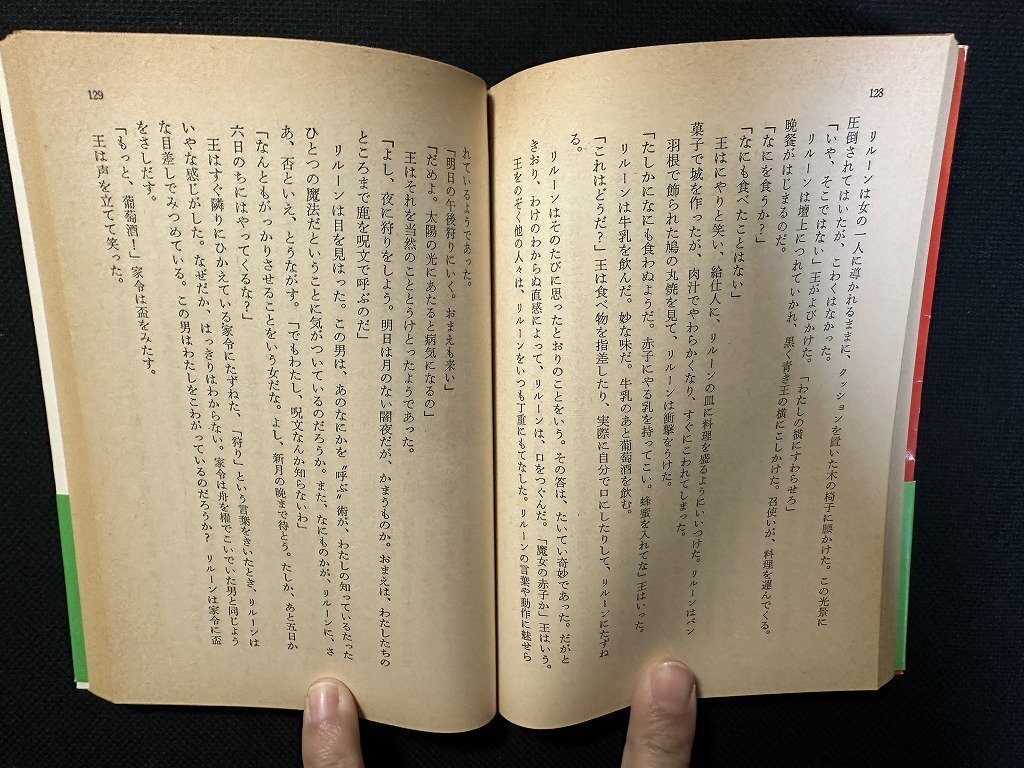 128
リルーンは女の一人に導かれるままに、クッションを置いた木の椅子に腰かけた。この光景に
圧倒されてはいたが、こわくはなかった。
「いや、そこではない」王がよびかけた。「わたしの横にすわらせろ」
リルーンは壇上につれていかれ、黒く青き王の横にこしかけた。召使いが、料理を運んでくる。
晩餐がはじまるのだ。
「なにを食うか?」
「なにも食べたことはない」
王はにやりと笑い、給仕人に、リルーンの皿に料理を盛るようにいいつけた。リルーンはパン
菓子で城を作ったが、肉汁でやわらかくなり、すぐにこわれてしまった。
羽根で飾られた鳩の丸焼を見て、リルーンは衝撃をうけた。
「たしかになにも食わぬようだ。赤子にやる乳を持ってこい。蜂蜜を入れてな」王はいった。
リルーンは牛乳を飲んだ。妙な味だ。牛乳のあと葡萄酒を飲む。
「これはどうだ?」王は食べ物を指差したり、実際に自分で口にしたりして、リルーンにたずね
る。
リルーンはそのたびに思ったとおりのことをいう。その答は、たいてい奇妙であった。だがと
きおり、わけのわからぬ直感によって、リルーンは、口をつぐんだ。「魔女の赤子か」王はいう。
王をのぞく他の人々は、リルーンをいつも丁重にもてなした。リルーンの言葉や動作に魅せら
129
れているようであった。
「明日の午後狩りにいく。おまえも来い」
「だめよ。太陽の光にあたると病気になるの」
王はそれを当然のこととうけとったようであった。
「よし、夜に狩りをしよう。明日は月のない闇夜だが、かまうものか。おまえは、わたしたちの
ところまで鹿を呪文で呼ぶのだ」
リルーンは目を見はった。この男は、あのなにかを〝呼ぶ〟術が、わたしの知っているたった
ひとつの魔法だということに気がついているのだろうか。また、なにものかが、リルーンに、さ
あ、否といえ、とうながす。「でもわたし、呪文なんか知らないわ」
「なんともがっかりさせることをいう女だな。よし、新月の晩まで待とう。たしか、あと五日か
六日のちにはやってくるな?」
王はすぐ隣りにひかえている家令にたずねた、「狩り」という言葉をきいたとき、リルーンは
いやな感じがした。なぜだか、はっきりはわからない。家令は舟を櫂でこいでいた男と同じよう
な目差しでみつめている。この男はわたしをこわがっているのだろうか? リルーンは家令に盃
をさしだす。
「もっと、葡萄酒!」家令は盃をみたす。
王は声を立てて笑った。